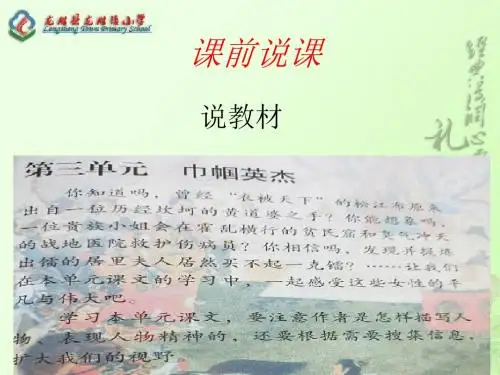 龙胜县龙胜镇小学
Longsheng Town Primary School
课前说课
说教材
第三单元 巾帼英杰
你知道吗，曾经“衣被天下”的松江布原来
出自一位历经坎坷的黄道婆之手？你能想象吗，
一位贵族小姐会在霍乱横行的贫民窟和臭气冲天
的战地医院救护伤病员？你相信吗，发现并提炼
出镭的居里夫人居然买不起一克镭？……让我们
在本单元课文的学习中，一起感受这些女性的平
凡与伟大吧。
学习本单元课文，要注意作者是怎样描写人
物、表现人物精神的，还要根据需要搜集信息，
扩大我们的视野。
经典浸润心
礼